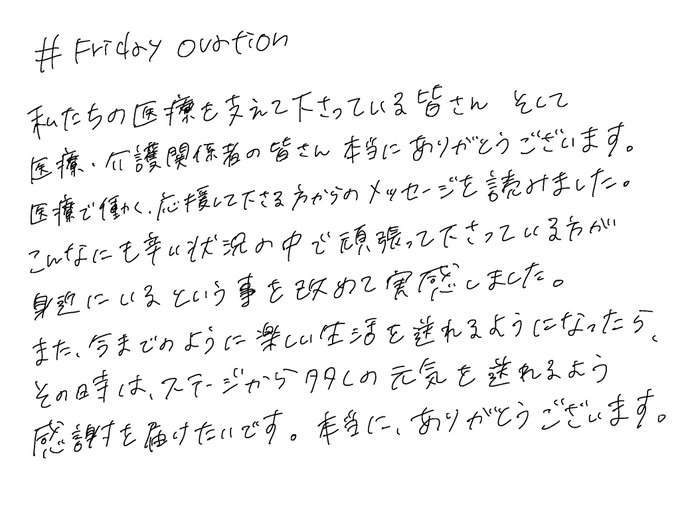 # Friday ovation
私たちの医療を支えて下さっている皆さん そして
医療・介護関係者の皆さん本当にありがとうございます。
医療で働く、応援して下さる方からのメッセージを読みました。
こんなにも辛い状況の中で頑張って下さっている方が
身近にいるという事を改めて実感しました。
また、今までのように楽しい生活を送れるようになったら、
その時は、ステージから沢山の元気を送れるよう
感謝を届けたいです。本当に、ありがとうございます。